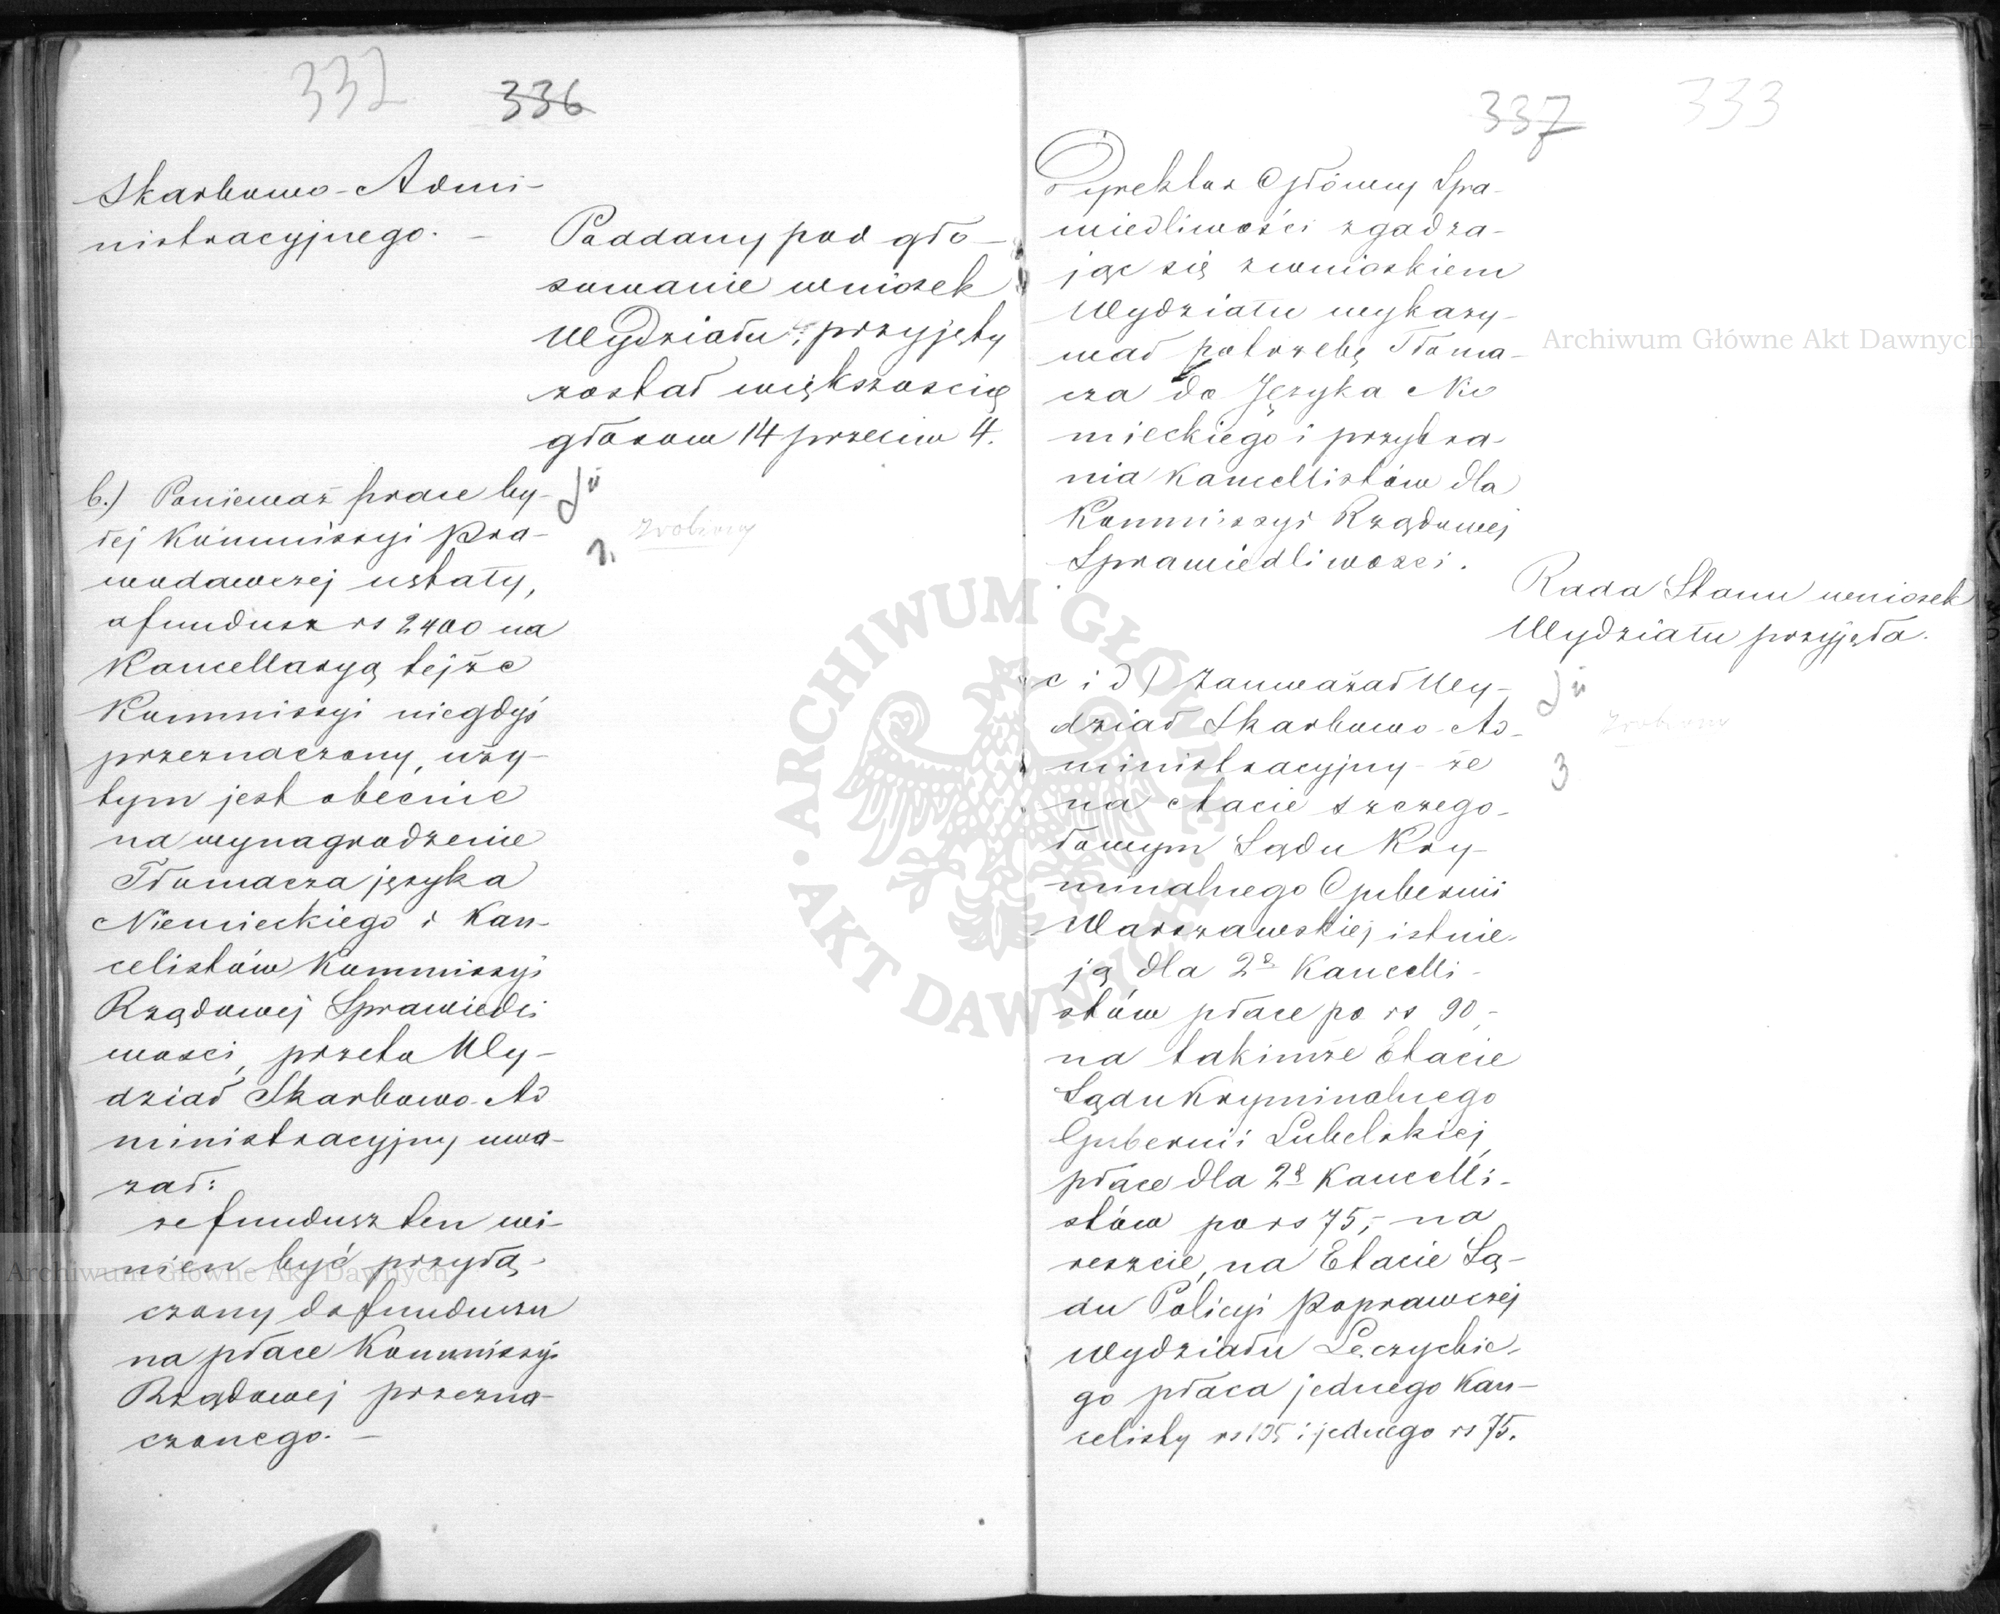 332 336
Skarbowo-Admi-
nistracyjnego. -
Poddany pod gło-
sowanie wniosek
Wydziału; przyjęty
został większością
głosów 14 przeciw 4.
b.) Ponieważ prace by-
łej Kommissyi Pra-
wodawczej ustały,
a fundusz rs 2400 na
Kancellaryą tejże
Kommissyi niegdyś
przeznaczony, uży-
tym jest obecnie
na wynagrodzenie
Tłomacza języka
Niemieckiego i Kan-
celistów Kommissyi
Rządowej Sprawiedli
wości, przeto Wy-
dział Skarbowo-Ad
ministracyjny uwa-
żał:
że fundusz ten wi-
nien być przyłą-
czony do funduszu
na płace Kommissyi
Rządowej przezna-
czonego. -
zrobiony
337 333
Dyrektor Główny Spra-
wiedliwości zgadza-
jąc się z wnioskiem
Wydziału wykazy-
wał potrzebę Tłoma-
cza do Języka Nie
mieckiego i przybra-
nia Kancellistów dla
Kommissyi Rządowej
Sprawiedliwości.
Rada Stanu wniosek
Wydziału przyjęła.
c i d) Zauważał Wy-
dział Skarbowo-Ad-
ministracyjny - że
na etacie szczegó-
łowym Sądu Kry-
minalnego Gubernii
Warszawskiej istnie-
ją dla 2ch Kancelli-
stów płace po rs 90,-
na takimże Etacie
Sądu Kryminalnego
Gubernii Lubelskiej,
płace dla 2ch Kancelli-
stów po rs 75,- na
reszcie, na Etacie Są-
du Policyi Poprawczej
Wydziału Łęczyckie-
go płaca jednego Kan-
celisty rs 135 i jednego rs 75.
zrobiony
3
Archiwum Główne Akt Dawnych
Archiwum Główne Akt Dawnych
ARCHIWUM GŁÓWNE • AKT DAWNYCH •